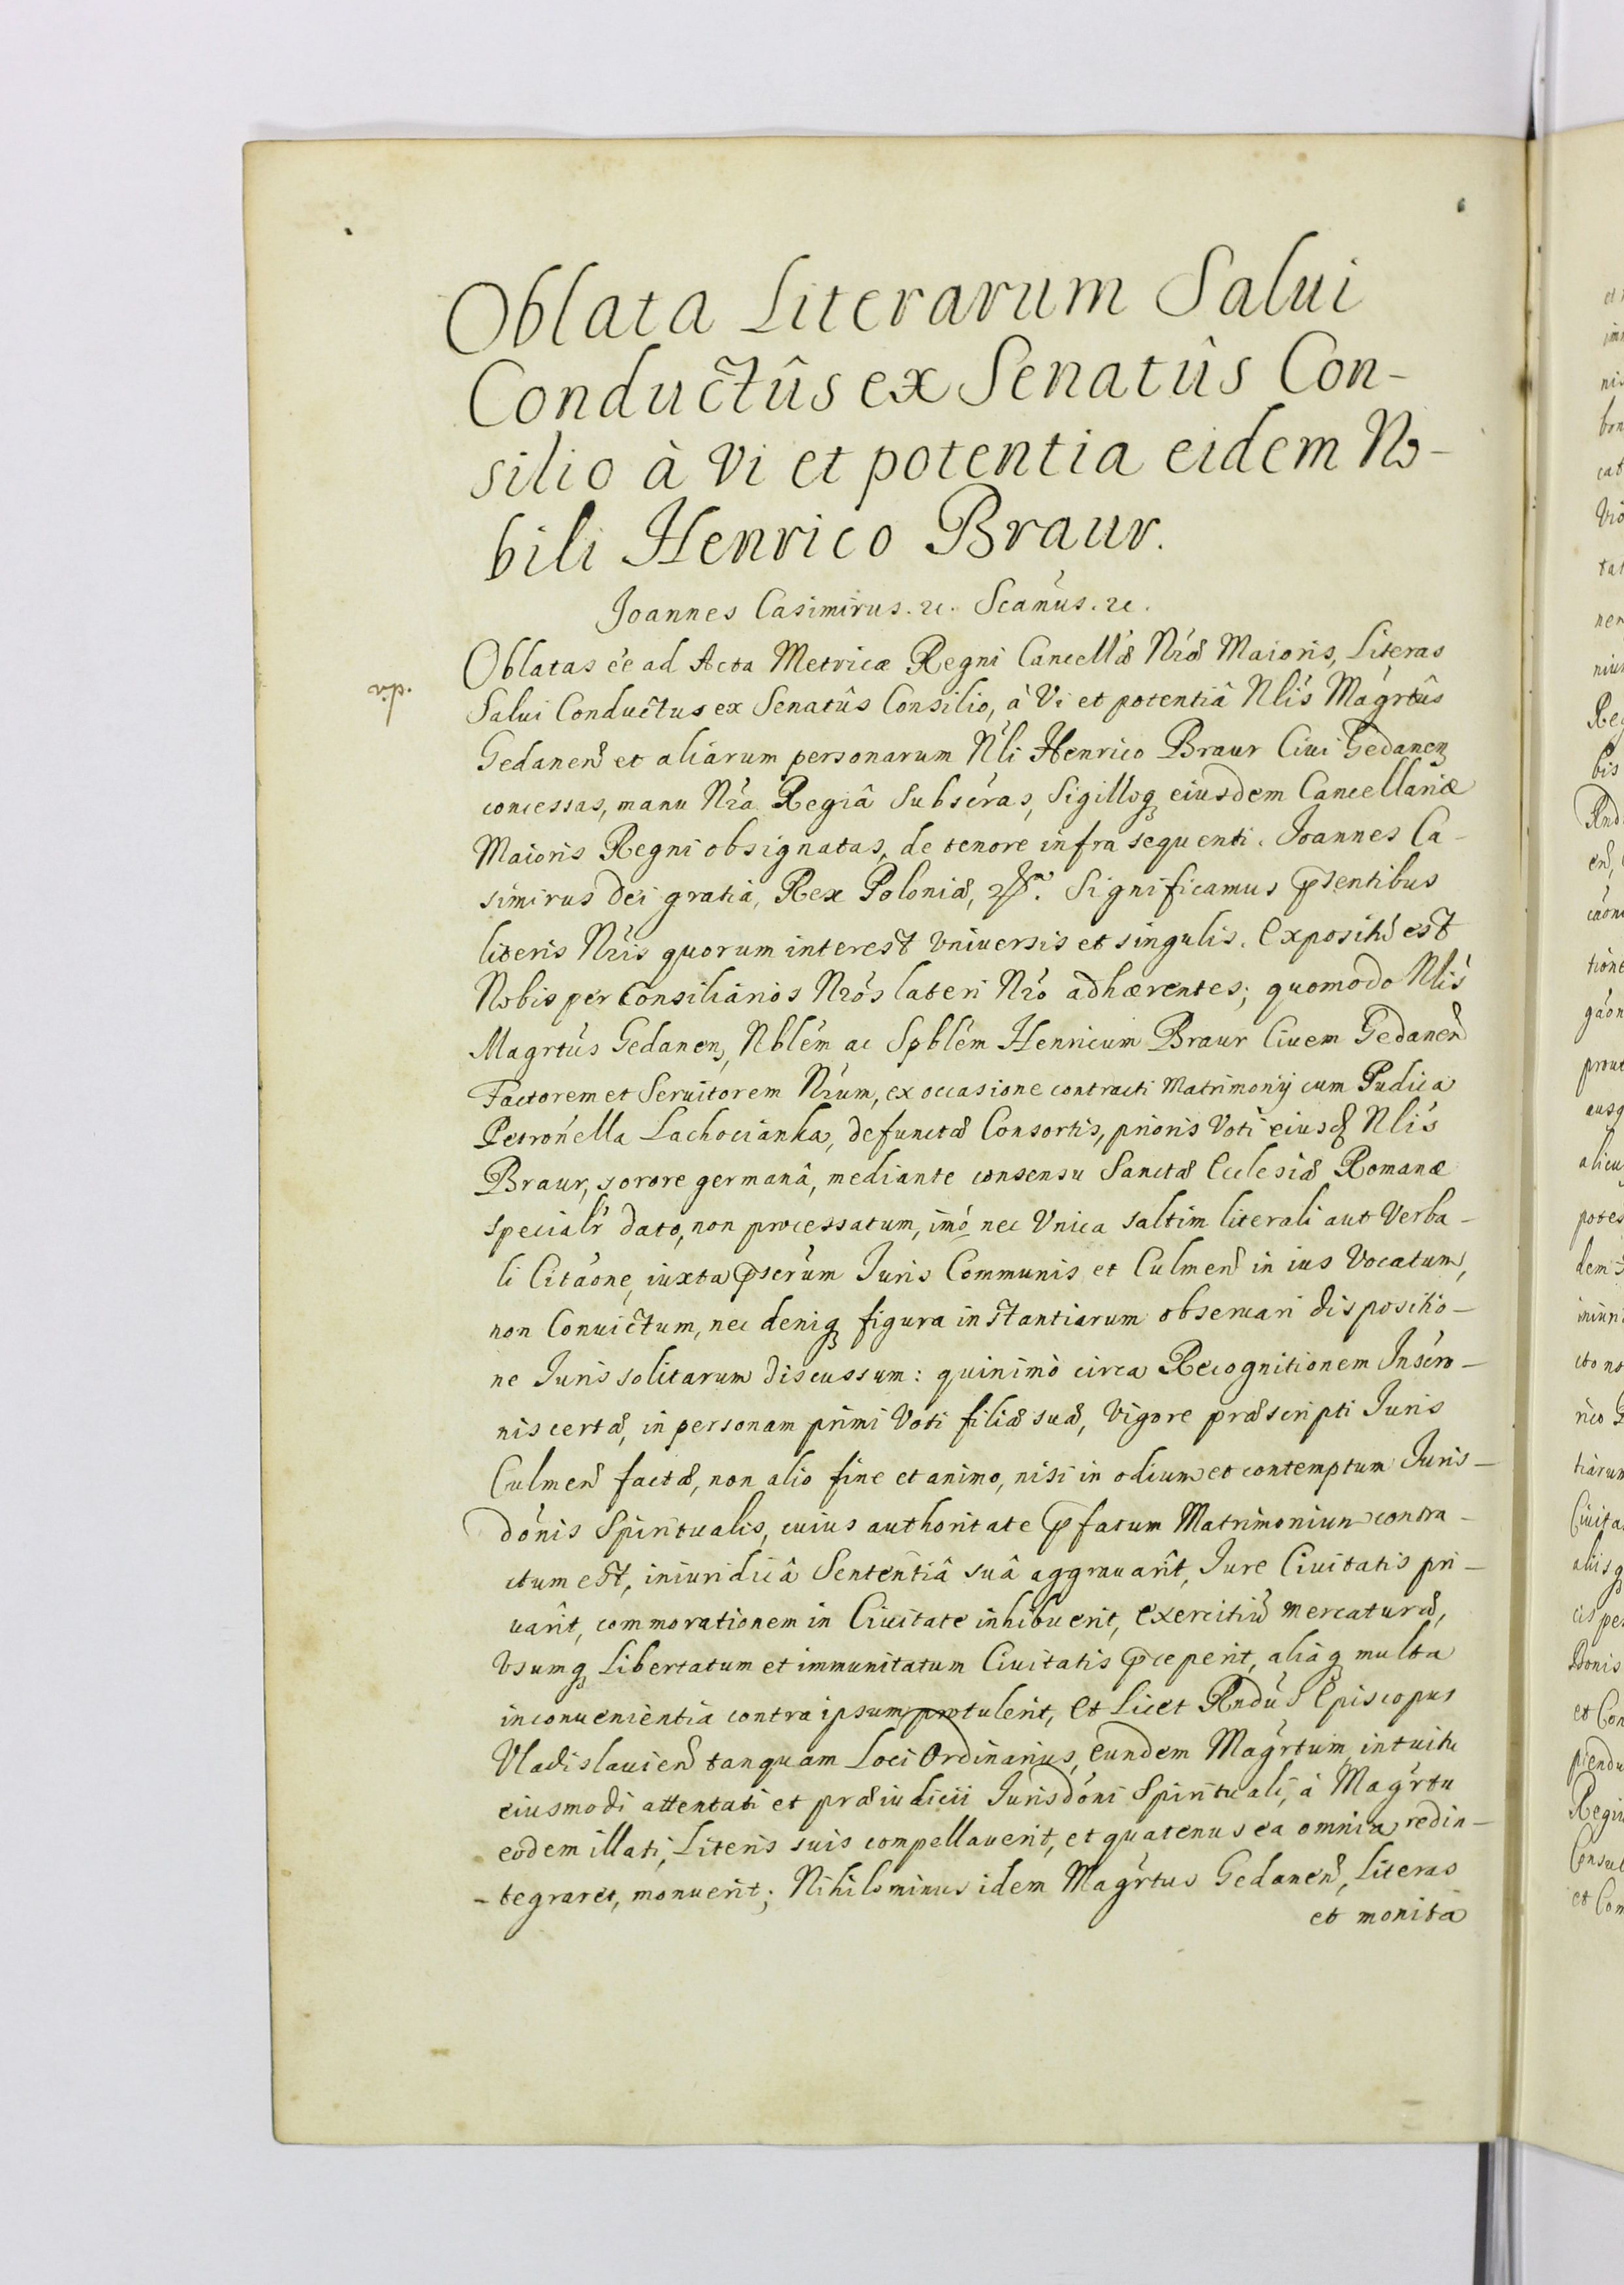 Oblata Literarum Salui
Conductûs ex Senatûs Con-
silio à vi et potentia eidem No-
bili Henrico Braur.
Joannes Casimirus. &c. Scamús. &c.
Oblatas eé ad Acta Metricæ Regni Cancellæ Nræ Maioris, Literas
Salui Conductus ex Senatûs Consilio, à Vi et potentiâ Nlis Magrtûs
Gedanen et aliarum personarum Nli Henrico Braur Ciui Gedanen
concessas, manu Nra Regiâ Subscras, Sigilloq eiusdem Cancellariæ
Maioris Regni obsignatas, de tenore infra sequenti. Joannes Ca-
simirus dei gratia, Rex Poloniæ, &. Significamus psentibus
literis Nris quorum interest Vniuersis et singulis. Expositũ est
Nobis per Consiliarios Nrós lateri Nró adhærentes; quomodo Nlis
Magrtús Gedanen, Nblém ac Spblém Henricum Braur Ciuem Gedanen
Factorem et Seruitorem Nrum, ex occasione contracti Matrimonij cum Pudica
Petronella Lachocianka, defunctæ Consortis, prioris Voti eiusd Nlis
Braur, sorore germanâ, mediante consensu Sanctæ Ecclesiæ Romanæ
specialr dato, non processatum, imó nec Vnica saltim literali aut Verba-
li Citaóne, iuxta pscrúm Juris Communis et Culmen in ius Vocatum,
non Conuictum, nec deniq figura instantiarum obseruari dispositio-
ne Juris solitarum discussum: quinimò circa Recognitionem Inscro-
nis certæ, in personam primi Voti filiæ suæ, Vigore præscripti Juris
Culmen factæ, non alio fine et animo, nisi in odium et contemptum Juris-
dónis Spiritualis, cuius authoritate pfatum Matrimonium contra-
ctum est, iniuridicâ Sententiâ suâ aggrauarit, Jure Ciuitatis pri-
uarit, commorationem in Ciuitate inhibuerit, exercitiũ mercaturæ,
Vsumq Libertatum et immunitatum Ciuitatis pceperit, aliaq multa
inconuenientia contra ipsum protulerit, Et Licet Rndús Episcopus
Vladislauien tanquam Loci Ordinarius, eundem Magrtum, intuitu
eiusmodi attentati et præiudicii Jurisdóni Spirituali, à Magrtu
eodem illati, Literis suis compellauerit, et quatenus ea omnia redin-
-tegraret, monuerit; Nihilominus idem Magrtus Gedanen, Literas
et monita